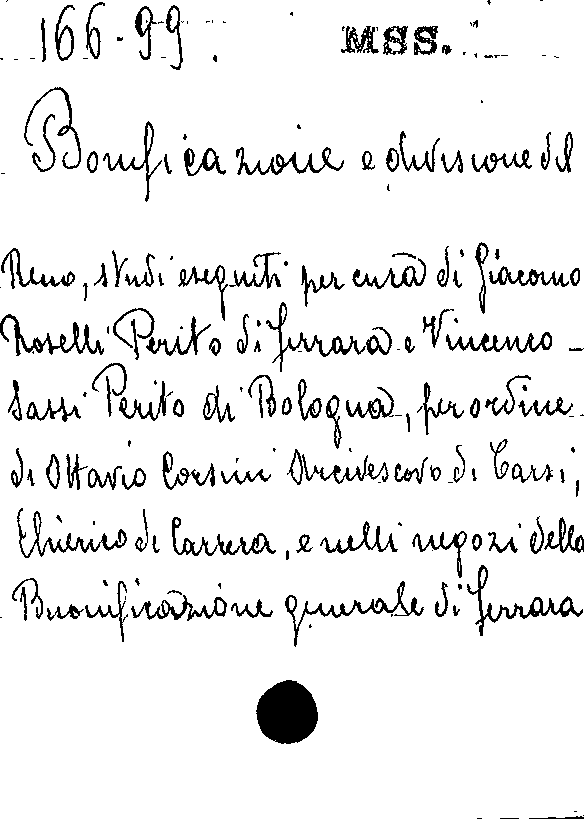 166-99. MSS.
Bonificazione e divisione del
Reno, studi eseguiti per cura di Giacomo
Roselli Perito di Ferrara e Vincenzo
Sassi Perito di Bologna, per ordine
di Ottavio Corsini Arcivescovo di Tarsi,
Chierico di Carrera, e nelli negozi della
Buonificazione generale di Ferrara